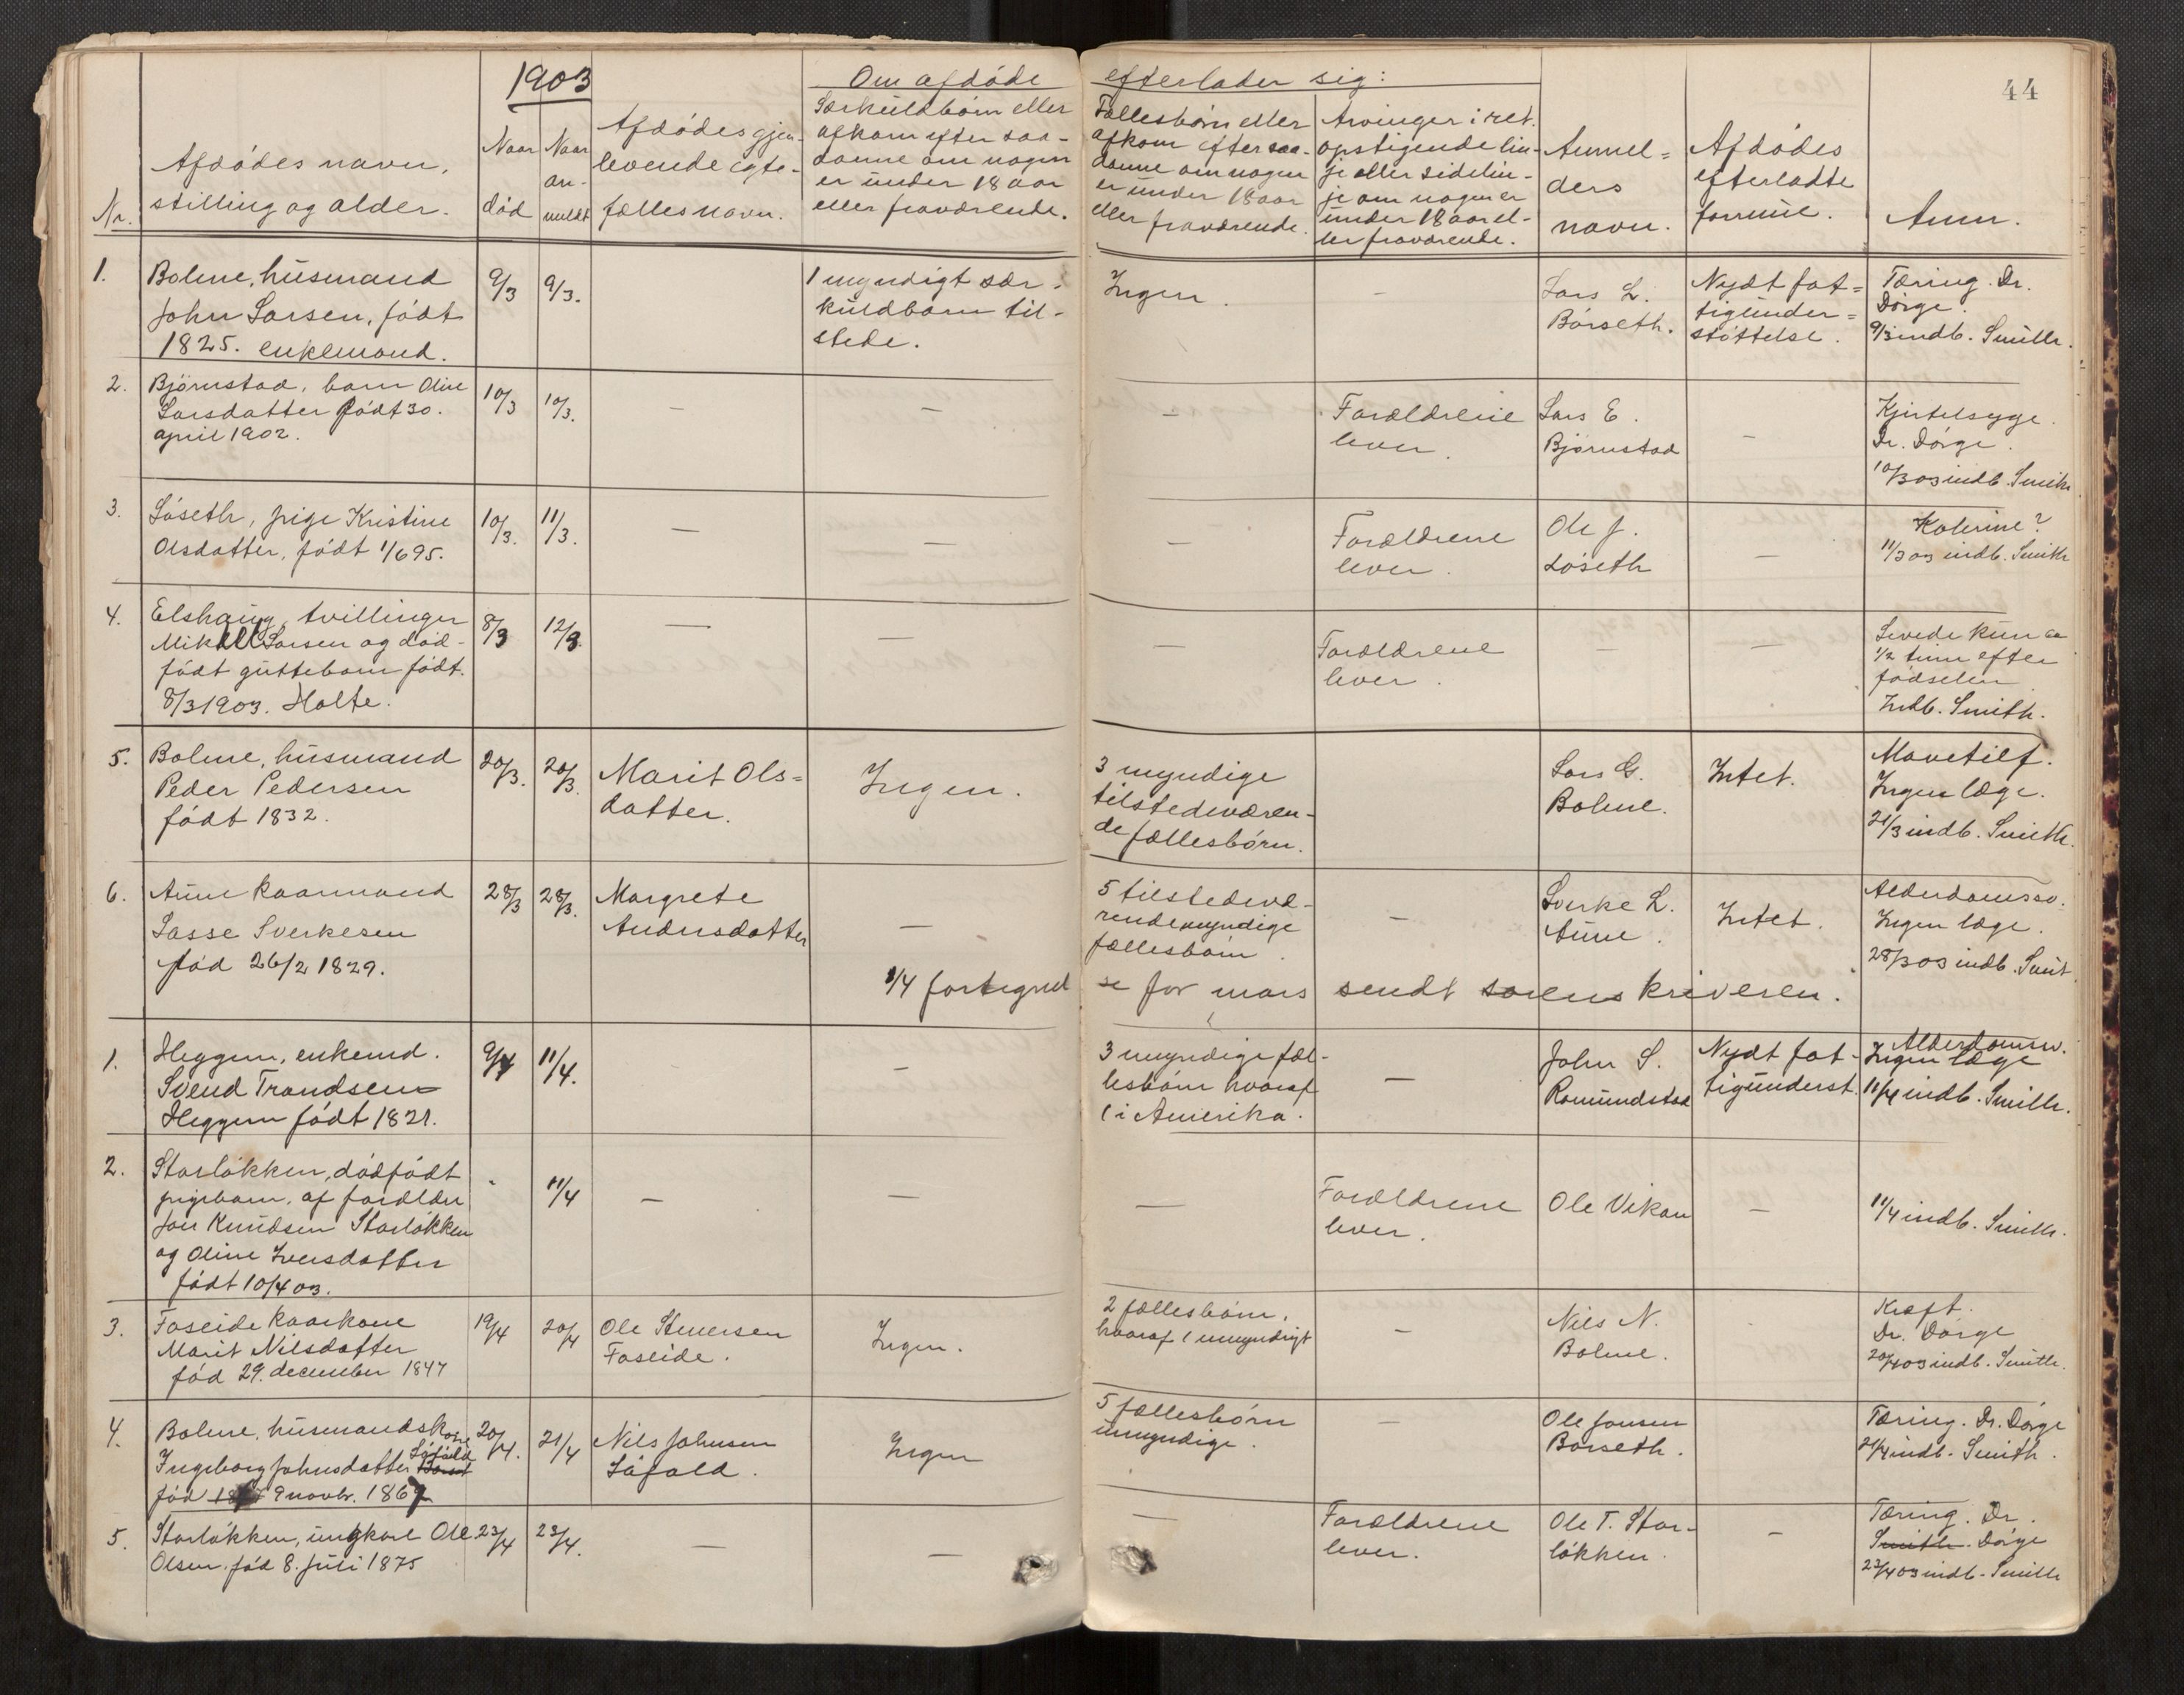 1903
44
Om afdöde efterlader sig:
Nr.
Afdödes navn,
stilling og alder.
Naar
död
Naar
an-
meldt
Afdödes gjen-
levende egte-
fælles navn.
Særkuldbörn eller
afkom efter saa-
danne om nogen
er under 18 aar
eller fraværende.
Fællesbörn eller
afkom efter saa-
danne om nogen
er under 18 aar
eller fraværende.
Arvinger i ret.
opstigende lin-
je eller sidelin-
je om nogen er
under 18 aar el-
ler fraværende.
Anmel=
ders
navn.
Afdödes
efterladte
formue.
Anm.
1.
Bolme, husmand
John Larsen, födt
1825. enkemand.
9/3
9/3.
1 myndigt sær-
kuldbarn til-
stede.
Ingen.
—
Lars L.
Börseth.
Nydt fat=
tigunder=
støttelse.
Tæring. Dr.
Dörge.
9/3 indb. Smith.
2.
Björnstad, barn Oline
Larsdatter födt 30.
april 1902.
10/3
10/3.
—
—
—
Forældrene
lever.
Lars E.
Björnstad
—
Kjirtelsyge.
Dr. Dörge.
10/3 03 indb. Smith
3.
Löseth, pige Kristine
Olsdatter, födt 1/6 95.
10/3.
11/3.
—
—
—
Forældrene
lever.
Ole J.
Löseth
—
Kolerine?
11/3 03 indb. Smith
4.
Elshaug, tvillinger
Mikall Larsen og död-
födt guttebarn födt.
8/3 1903. Holte.
8/3
12/3.
—
—
—
Forældrene
lever.
—
—
Levede kun ca
1/2 time efter
födselen
Indb. Smith.
5.
Bolme, husmand
Peder Pedersen
födt 1832.
20/3.
20/3.
Marit Ols=
datter.
Ingen.
3 myndige
tilstedeværen-
de fællesbörn.
Lars G.
Bolme.
Intet.
Mavetilf.
Ingen læge.
21/3 indb. Smith.
6.
Aune kaarmand
Lasse Sverkesen
föd 26/2 1829.
28/3
28/3.
Margrete
Andersdatter
—
5 tilstedevæ-
rende myndige
fællesbörn.
—
Sverke L.
Aune.
Intet.
Alderdomssv.
Ingen læge.
28/3 03 indb. Smit
1/4 fortegnelse for mars sendt sorenskriveren.
1.
Heggem, enkemd.
Svend Trondsen
Heggem födt 1821.
9/4
11/4.
—
3 myndige fæl-
lesbörn hvoraf
1 i Amerika.
—
John S.
Romundstad
Nydt fat-
tigunderst.
Alderdomssv.
Ingen læge
11/4 indb. Smith.
2.
Storlökken, dödfödt
pigebarn, af forældre
Jon Knudsen Storlökken
og Oline Iversdatter
födt 10/4 03.
"
11/4
—
—
—
Forældrene
lever.
Ole Vikan
—
11/4 indb. Smith.
3.
Foseide kaarkone
Marit Nilsdatter
föd 29. december 1847
19/4
20/4
Ole Stenersen
Foseide.
Ingen.
2 fællesbörn,
hvoraf 1 umyndigt
—
Nils N.
Bolme.
Kræft.
Dr. Dörge
20/4 03 indb. Smith.
4.
Bolme, husmandskone
Ingeborg Johnsdatter Löfald
föd 9 novbr. 1867
20/4.
21/4
Nils Johnsen
Löfald.
Ingen
5 fællesbörn
umyndige.
—
Ole Jonsen
Börseth.
Tæring. Dr. Dörge
21/4 indb. Smith.
5.
Storlökken, ungkarl Ole
Olsen, föd 8. juli 1875
23/4
23/4.
—
—
—
Forældrene
lever.
Ole T. Stor-
lökken.
—
Tæring. Dr.
Smith. Dörge
23/4 03 indb. Smith